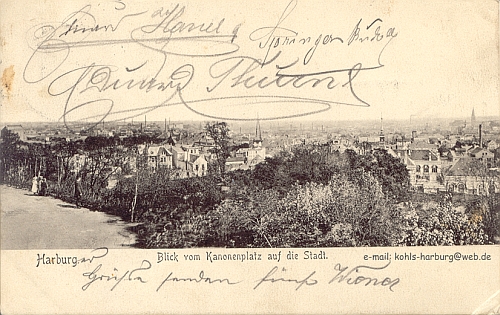 Eduard Hanel
Springer Rudolf
Eduard
Harburg er
Blick vom Kanonenplatz auf die Stadt.
e-mail: kohls-harburg@web.de
Grüße senden fünf Wiener